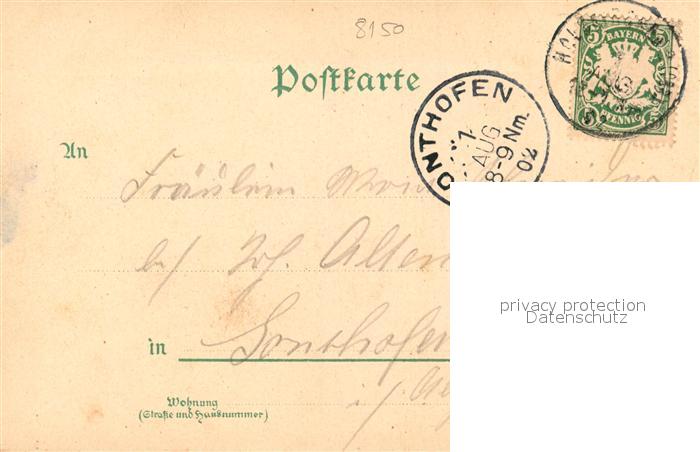 8150
5 BAYERN 5
5 PFENNIG 5
Postkarte
ONTHOFEN
AUG
8-9 Nm.
02
An
Fräulein
b/ Jos. Alten
in Sonthofen
i/
Wohnung
(Straße und Hausnummer)
privacy protection
Datenschutz